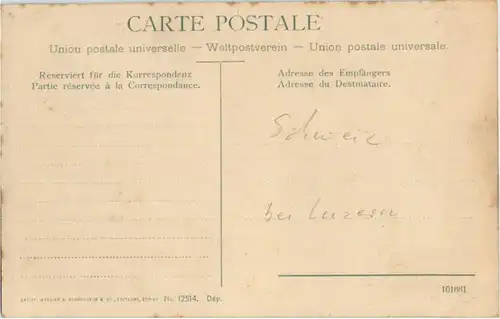 CARTE POSTALE
Union postale universelle – Weltpostverein – Union postale universale.
Reserviert für die Korrespondenz
Partie réservée à la Correspondance.
Adresse des Empfängers
Adresse du Destinataire.
Schweiz
bei Luzern
No. 12514. Dép.
101081